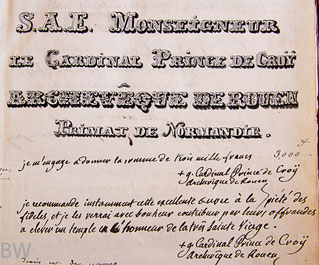 S.A.E. Monseigneur
le Cardinal Prince de Croÿ
Archevêque de Rouen
Primat de Normandie.
je m'engage a donner la somme de trois mille francs 3,000
+ g. Cardinal Prince de Croÿ
archevêque de Rouen
je recommande instamment cette excellente œuvre à la piété des
fidèles, et je les verrai avec bonheur contribuer par leurs offrandes
a élever un temple en l'honneur de la très Sainte Vierge.
+ g. Cardinal Prince de Croÿ
archevêque de Rouen
BW